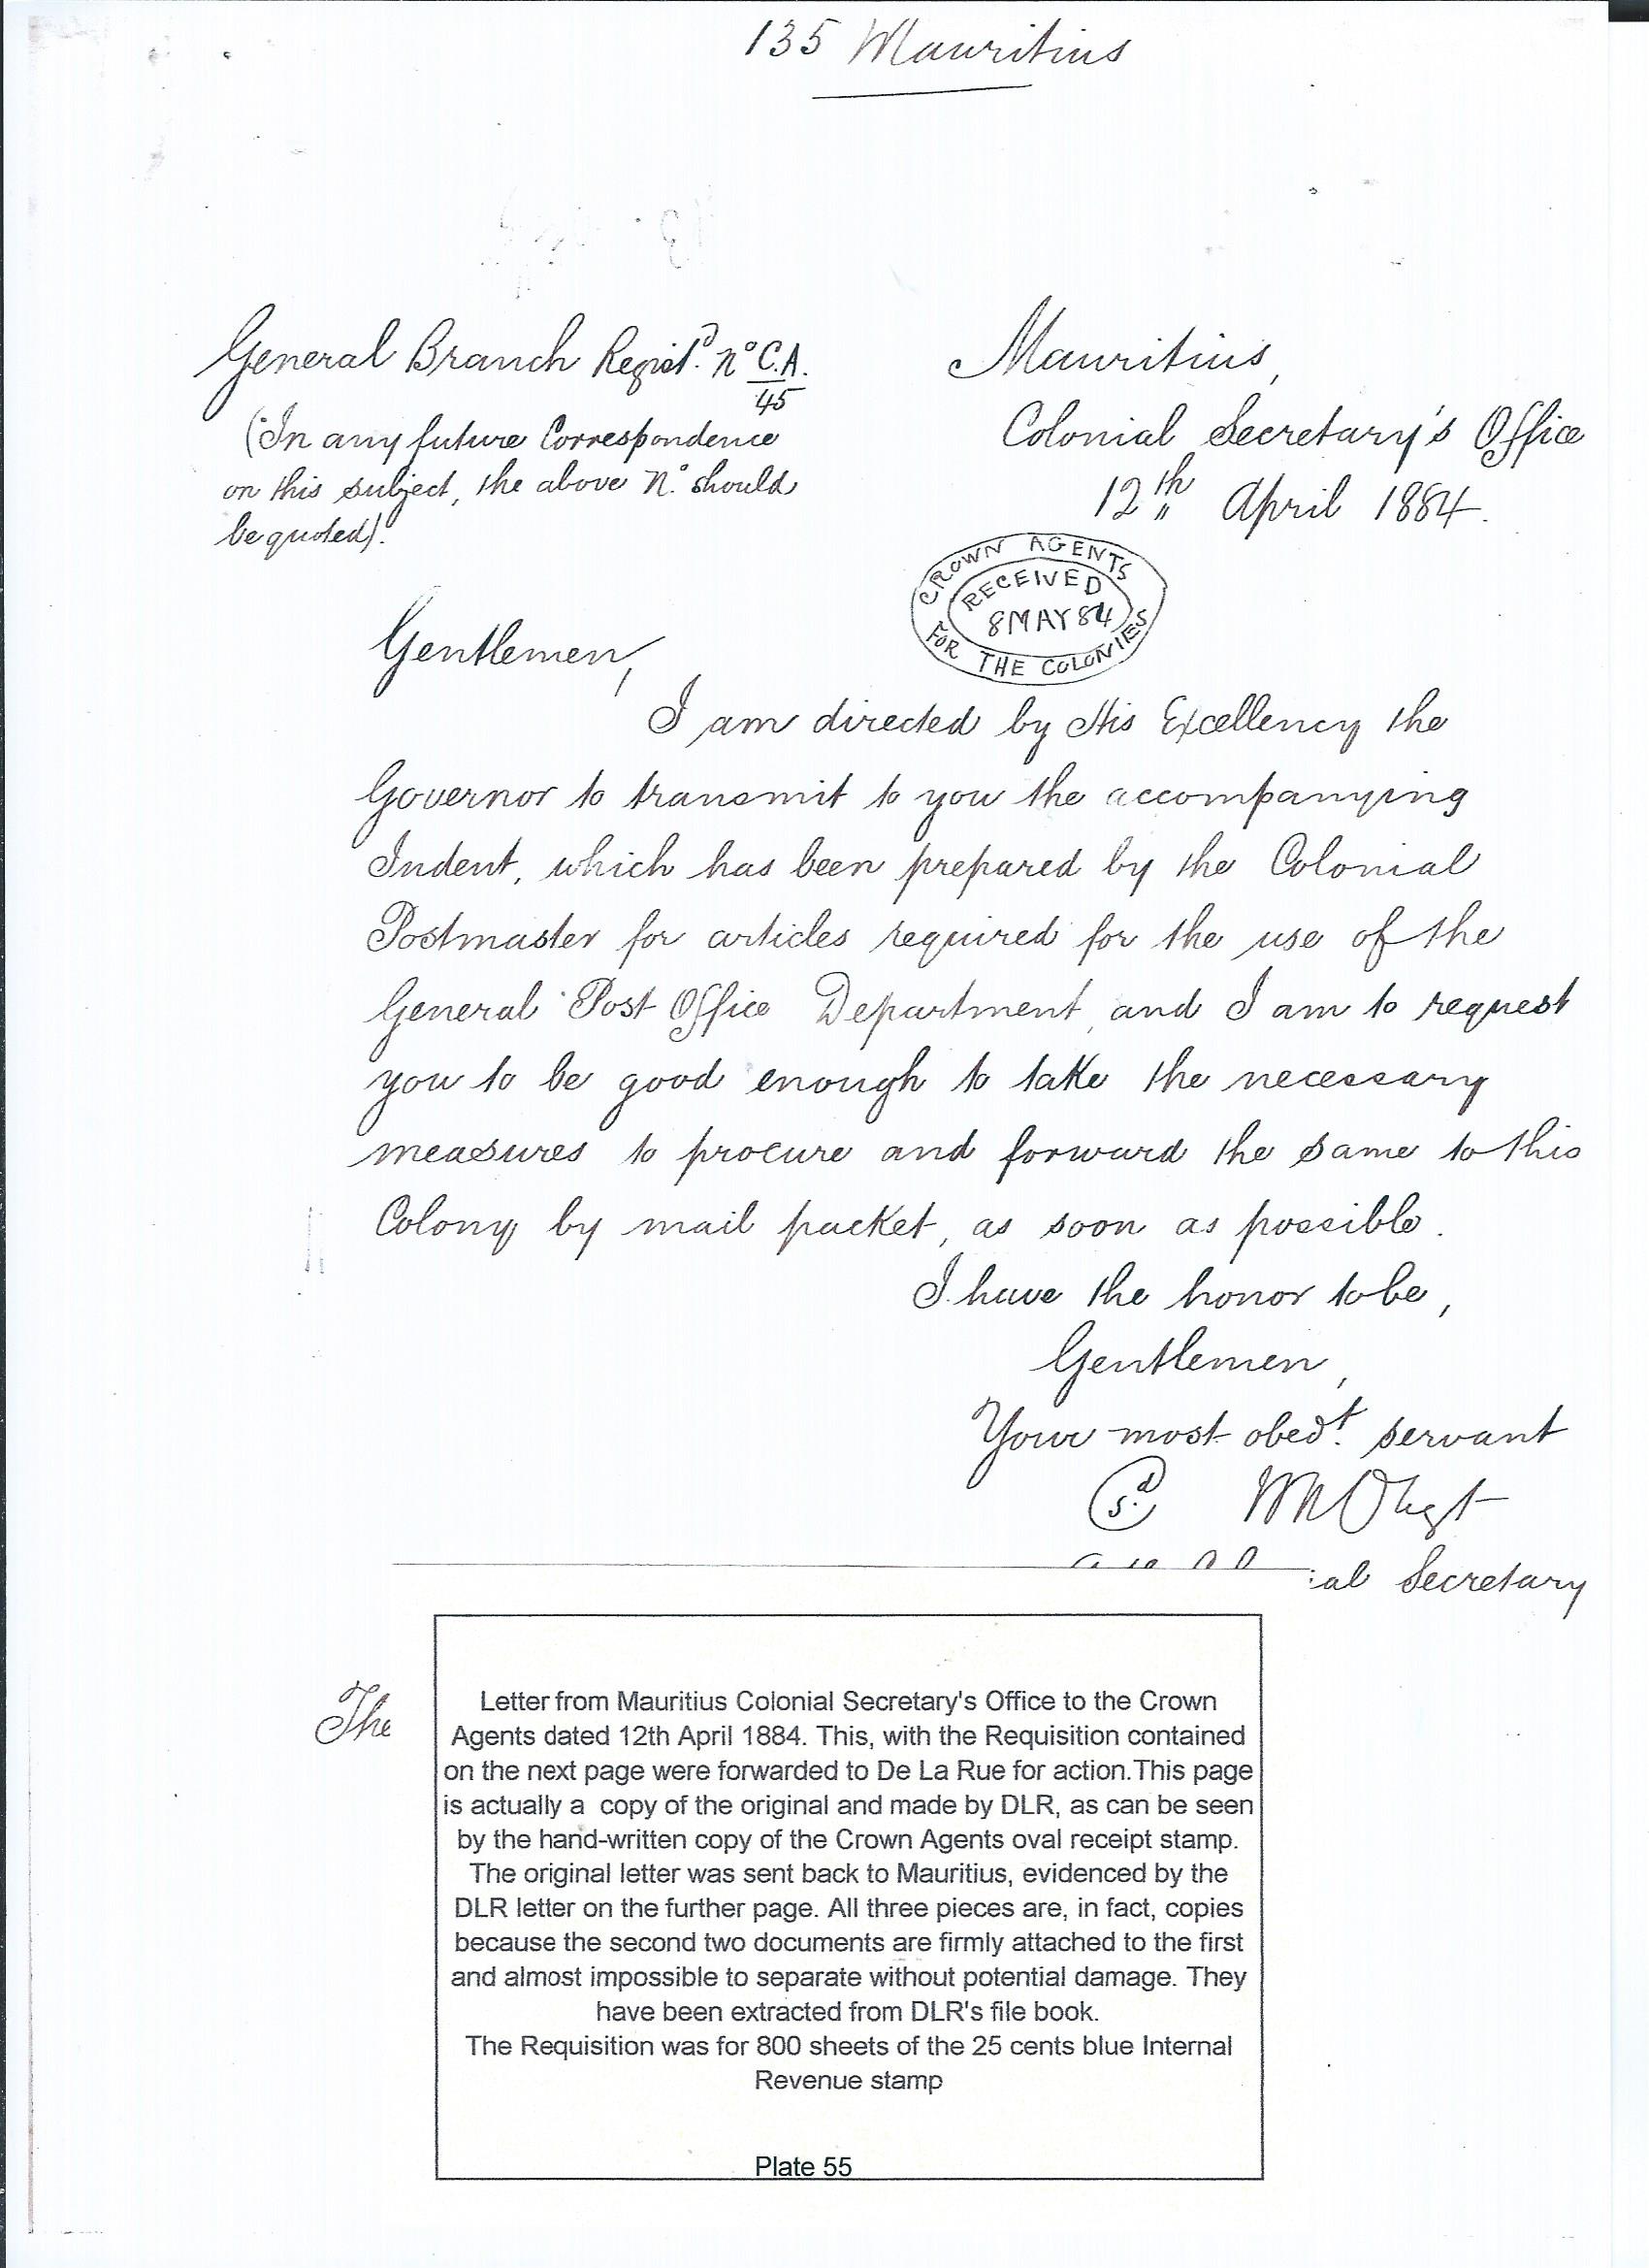 135 Mauritius
General Branch Regist.d No C.A.
45
(In any future Correspondence
on this subject, the above No. should
be quoted).
Mauritius,
Colonial Secretary's Office
12th April 1884.
CROWN AGENTS
RECEIVED
8 MAY 84
FOR THE COLONIES
Gentlemen,
I am directed by His Excellency the
Governor to transmit to you the accompanying
Indent, which has been prepared by the Colonial
Postmaster for articles required for the use of the
General Post Office Department, and I am to request
you to be good enough to take the necessary
measures to procure and forward the same to this
Colony by mail packet, as soon as possible.
I have the honor to be,
Gentlemen,
Your most obedt. servant
Sd.
ial Secretary
The
Letter from Mauritius Colonial Secretary's Office to the Crown
Agents dated 12th April 1884. This, with the Requisition contained
on the next page were forwarded to De La Rue for action.This page
is actually a copy of the original and made by DLR, as can be seen
by the hand-written copy of the Crown Agents oval receipt stamp.
The original letter was sent back to Mauritius, evidenced by the
DLR letter on the further page. All three pieces are, in fact, copies
because the second two documents are firmly attached to the first
and almost impossible to separate without potential damage. They
have been extracted from DLR's file book.
The Requisition was for 800 sheets of the 25 cents blue Internal
Revenue stamp
Plate 55